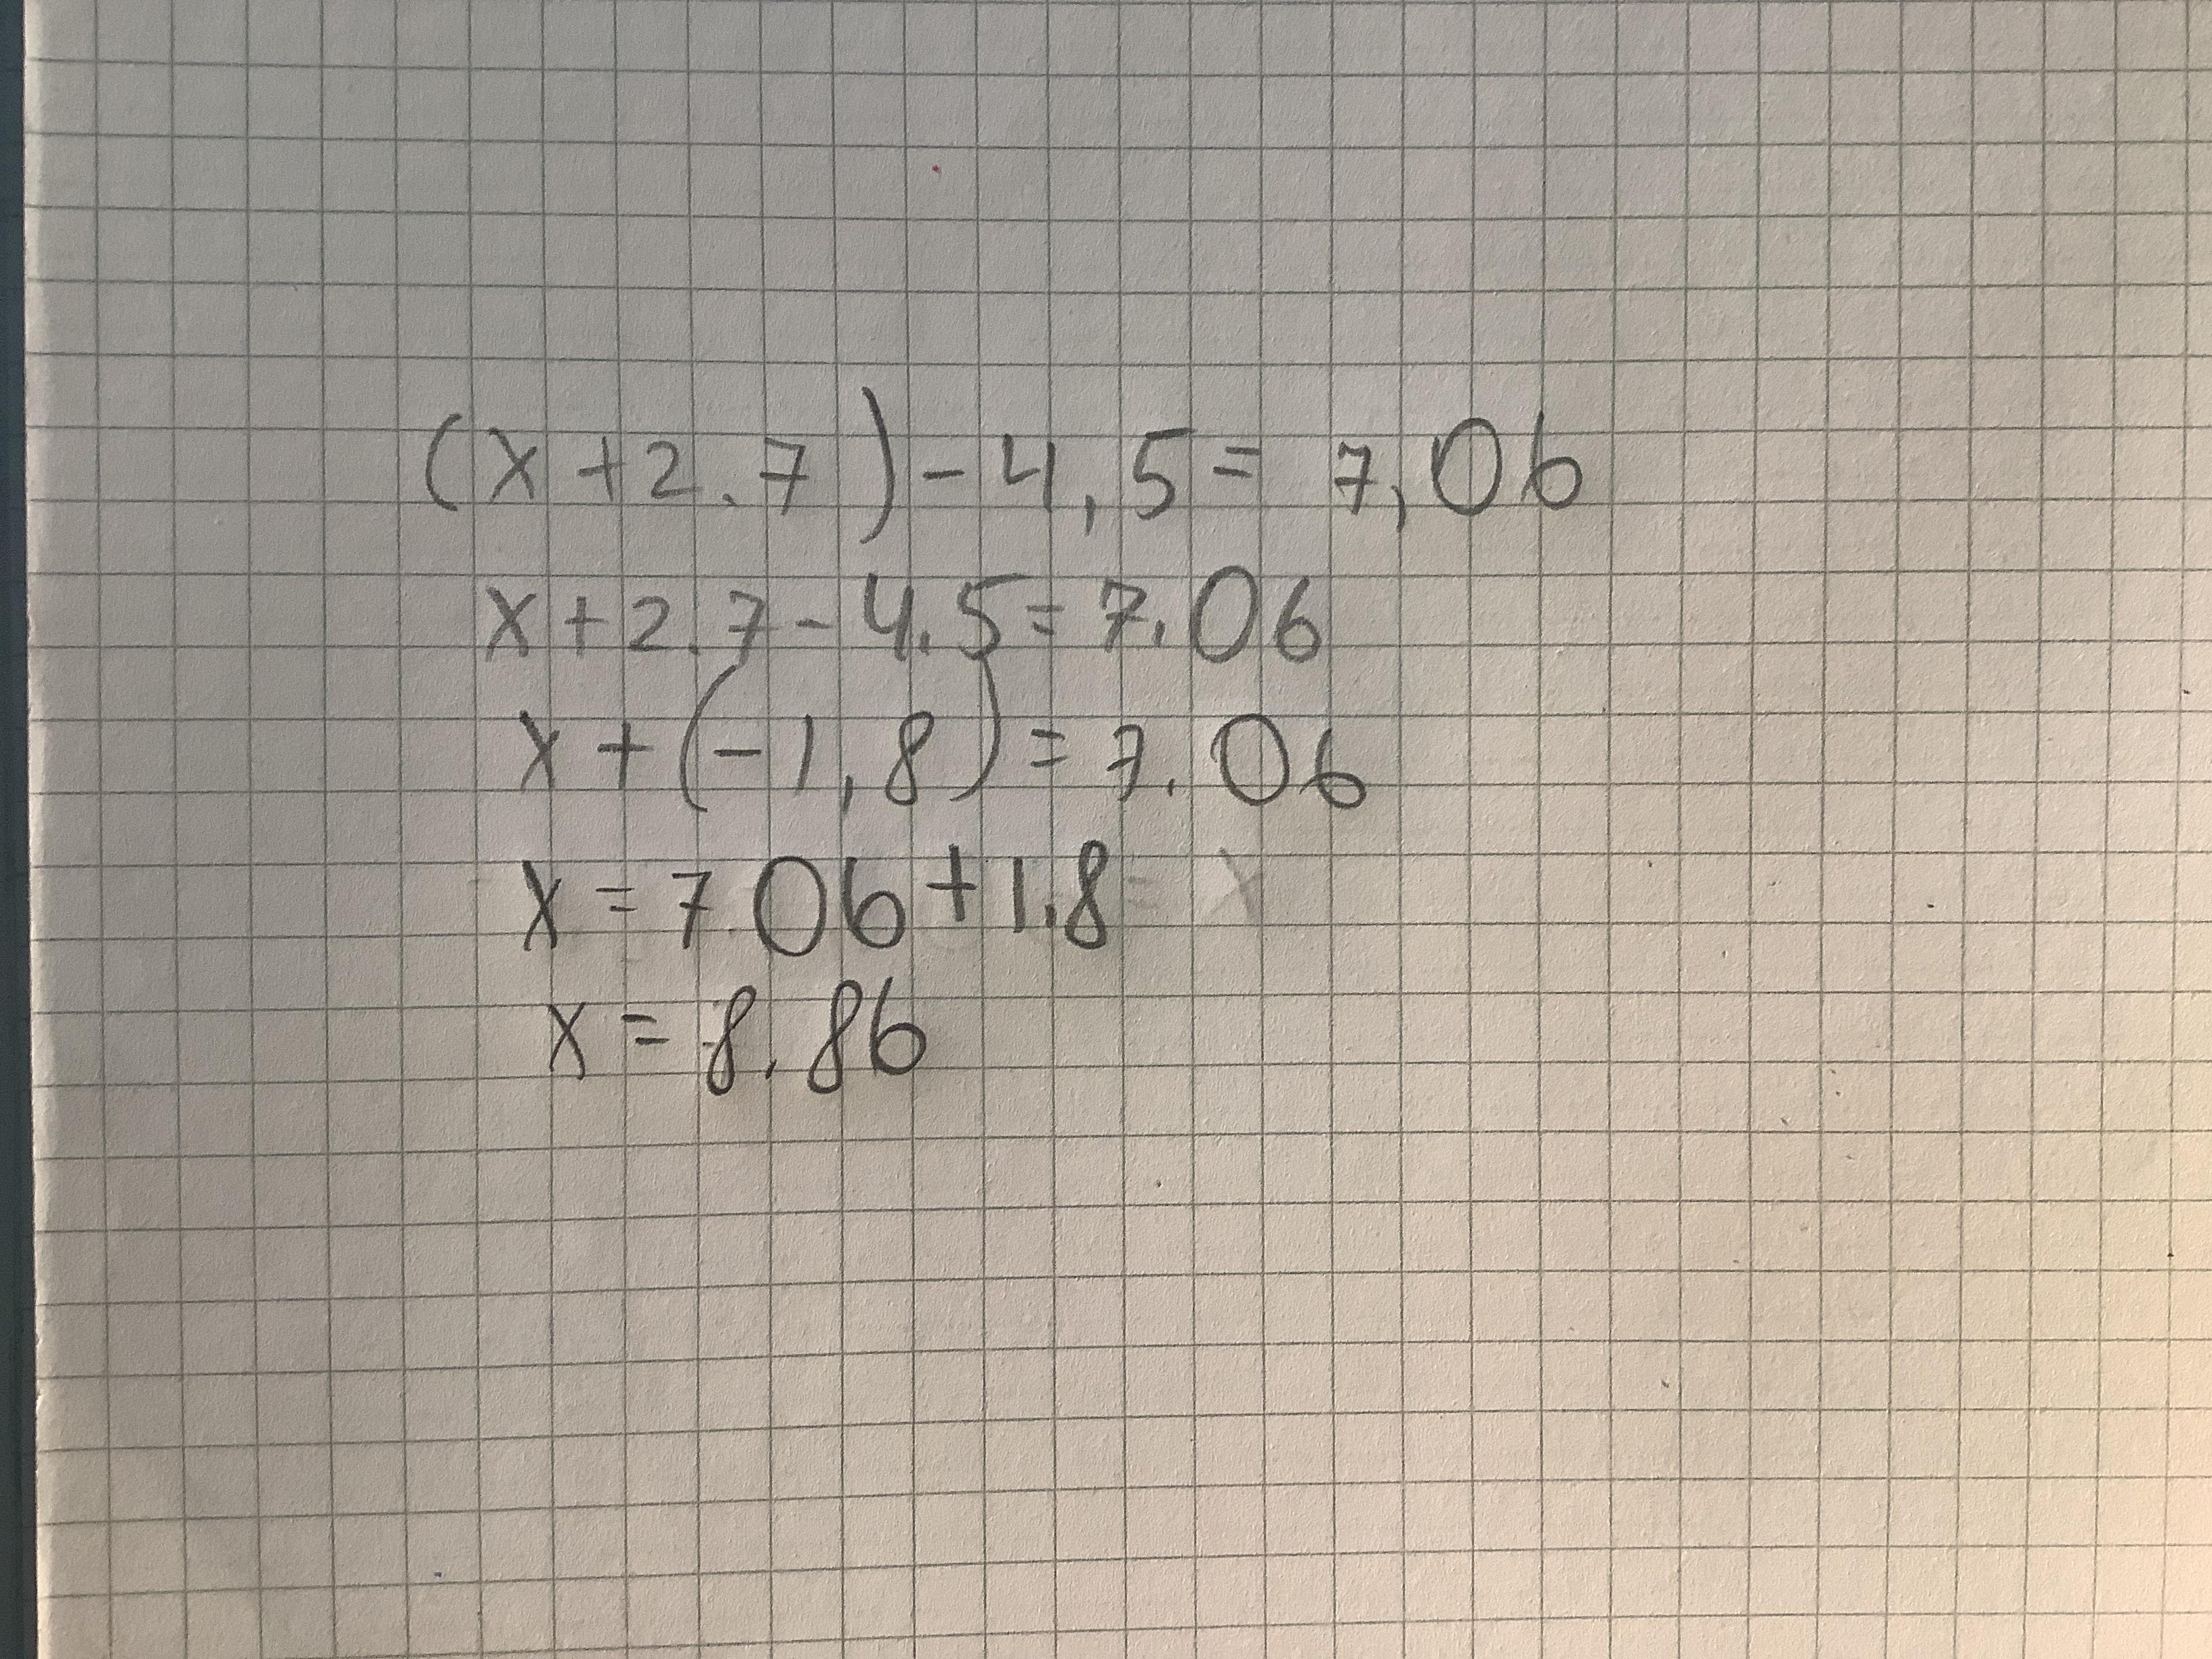 (x+2.7)-4,5=7,06
x+2.7-4.5=7.06
x+(-1,8)=7.06
x=7.06+1.8
x=8.86